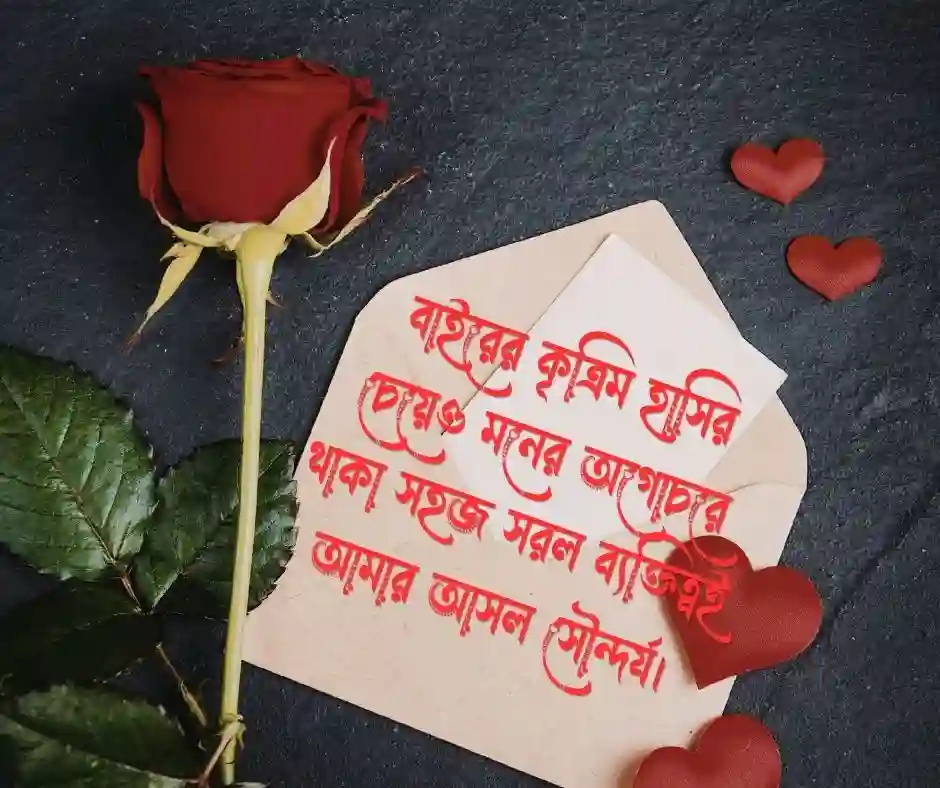 বাইরের কৃত্রিম হাসির
চেয়েও মনের অগোচরে
থাকা সহজ সরল ব্যক্তিত্বই
আমার আসল সৌন্দর্য।